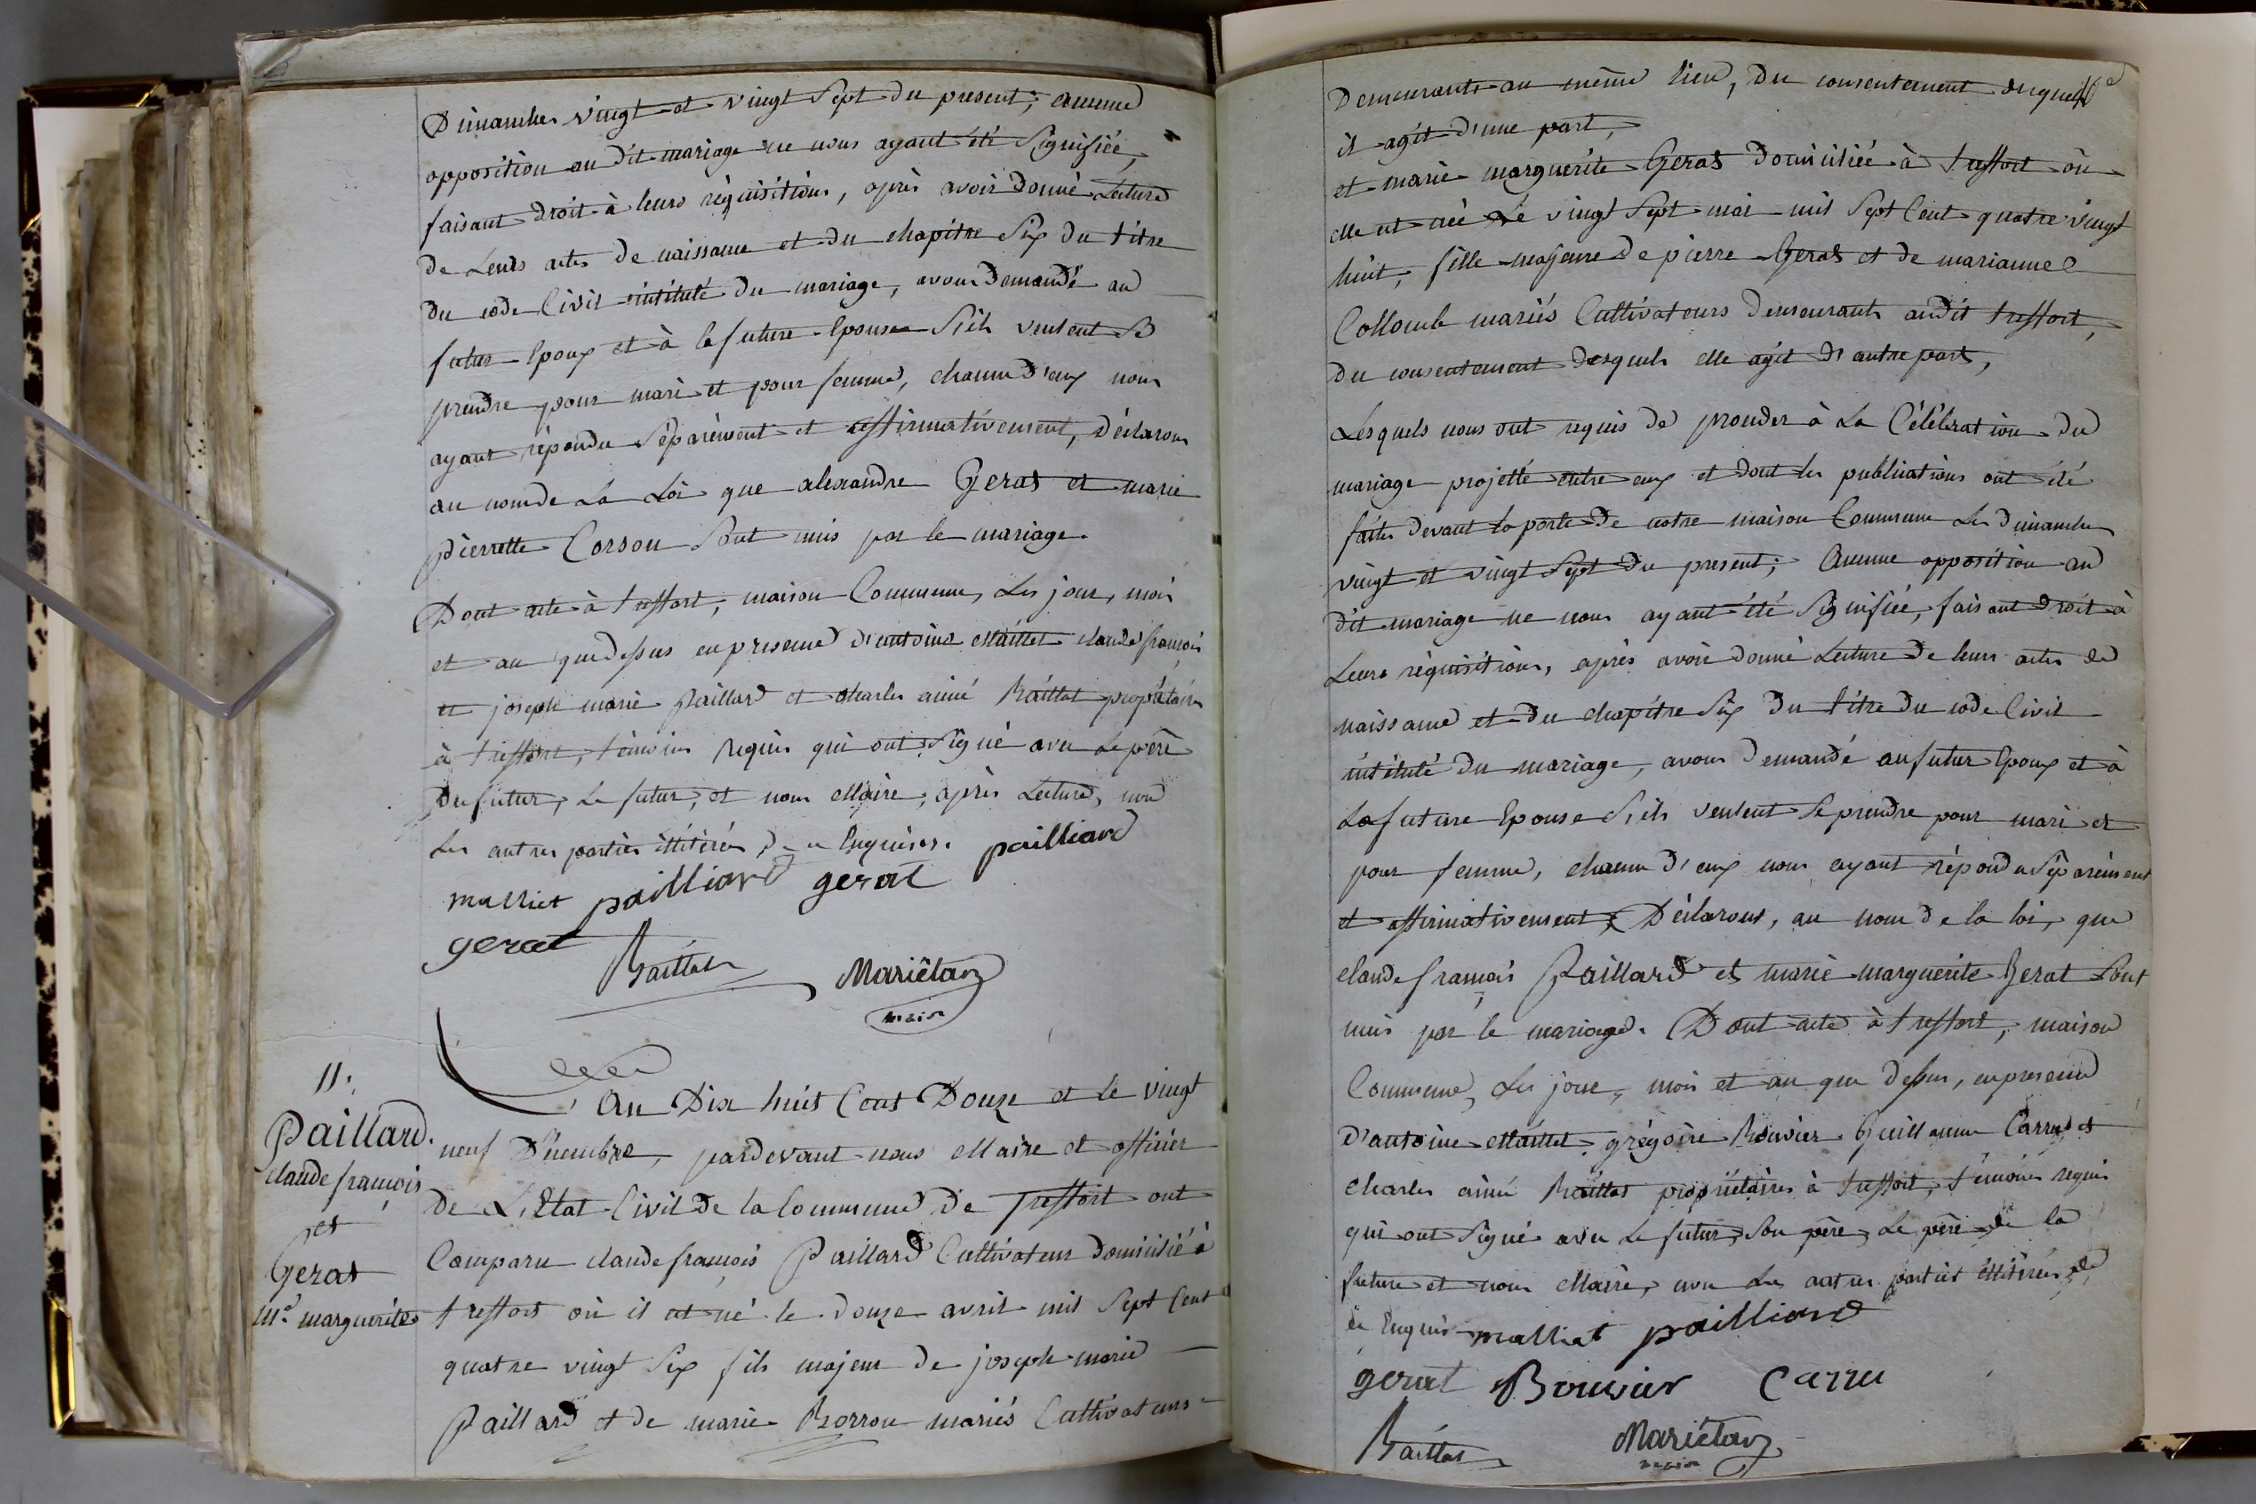 Dimanches vingt et vingt Sept du present; aucune
opposition au dit mariage ne nous ayant été Signifiée,
faisant droit à leurs réquisitions, après avoir donné Lecture
de Leurs actes de naissance et du chapitre Six du titre
du code Civil intitulé du mariage, avons Demandé au
futur Epoux et à la future Epouse S'ils veulent Se
prendre pour mari et pour femme, chacun d'eux nous
ayant répondu Séparément et affirmativement, Déclarons
au nom de La Loi que alexandre Gerat et marie
pierrette Corson Sont unis par le mariage.
Dont acte à treffort, maison Commune, Les jour, mois
et an que dessus en presence d'antoine Malliet claude françois
et joseph marie Paillard et charles aimé Raillat propriétaires
à treffort, témoins requis qui ont Signé avec Le père
Du futur, Le futur, et nous Maire, après Lecture, non
Les autres parties illitérées de ce Enquises.
malliet pailliard gerat pailliard
gerat Raillat Mariétan
maire
11.
Paillard
claude françois
et
Gerat
M.e marguerite
An Dix huit Cent Douze et le vingt
neuf Décembre, pardevant nous Maire et officier
de L'Etat Civil de la Commune de treffort ont
Comparu claude françois Paillard Cultivateur domicilié à
treffort où il est né le douze avril mil Sept Cent
quatre vingt Six fils majeur de joseph marie
Paillard et de marie Borron mariés Cultivateurs
Demeurants au même lieu, du consentement desquels
il agit d'une part,
et marie marguerite Gerat domiciliée à treffort où
elle est née Le vingt Sept mai mil Sept Cent quatre vingt
huit, fille majeure de pierre Gerat et de marianne
Collomb mariés Cultivateurs demeurants audit treffort,
du consentement desquels elle agit d'autre part,
Lesquels nous ont requis de proceder à La Célébration du
mariage projetté entre eux et dont les publications ont été
faites devant la porte de notre maison Commune Les dimanches
vingt et vingt Sept du present; Aucune opposition au
dit mariage ne nous ayant été Signifiée, faisant droit à
Leurs réquisitions, après avoir donné Lecture de leurs actes de
naissance et du chapitre Six du titre du code Civil
intitulé du mariage, avons demandé au futur Epoux et à
La future Epouse S'ils veulent Se prendre pour mari et
pour femme, chacun d'eux nous ayant répondu Séparément
et affirmativement, Déclarons, au nom de la loi, que
claude françois Paillard et marie marguerite Gerat Sont
unis par le mariage. Dont acte à treffort, maison
Commune, Les jour, mois et an que dessus, en presence
d'antoine Malliet, grégoire Bouvier Guillaume Carru et
charles aimé Raillat propriétaires à treffort, témoins requis
qui ont Signé avec Le futur, Son père, Le père de la
future et nous Maire, non Les autres parties illitérées de
ce Enquis malliet pailliard
gerat Bouvier Carru
Raillat Mariétan
maire